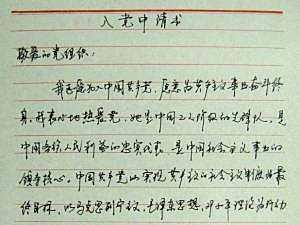 入党申请书
敬爱的党组织：
我志愿加入中国共产党，愿意为共产主义事业奋斗终
身。我衷心地热爱党，她是中国工人阶级的先锋队，是
中国各族人民利益的忠实代表，是中国社会主义事业的
领导核心。中国共产党以实现共产主义的社会主义制度为最
终目标，以马克思列宁主义、毛泽东思想、邓小平理论为行动